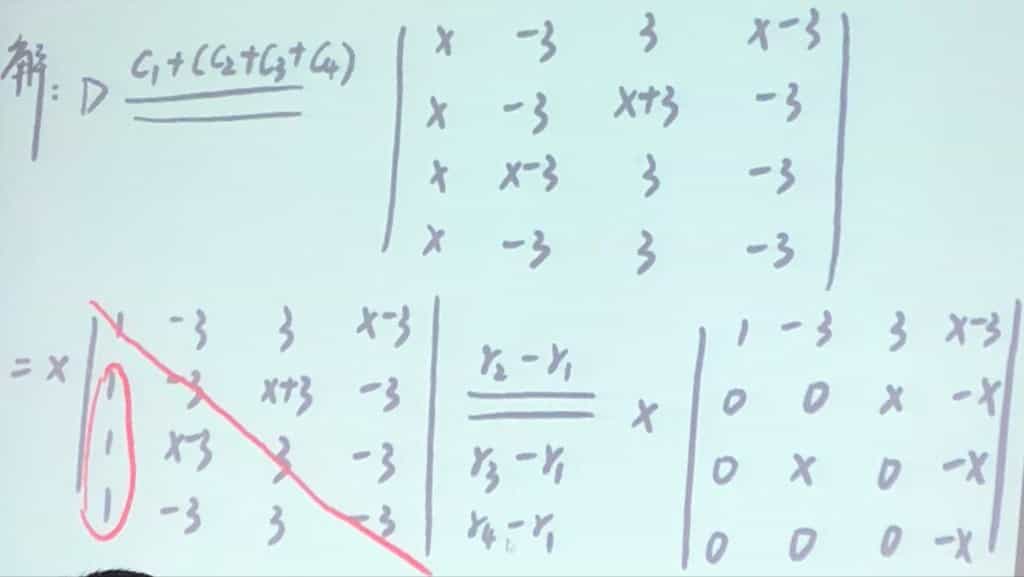 解: D C₁+(C₂+C₃+C₄)
x -3 3 x-3
x -3 x+3 -3
x x-3 3 -3
x -3 3 -3
= x
1 -3 3 x-3
1 -3 x+3 -3
1 x-3 3 -3
1 -3 3 -3
r₂-r₁
r₃-r₁
r₄-r₁
x
1 -3 3 x-3
0 0 x -x
0 x 0 -x
0 0 0 -x